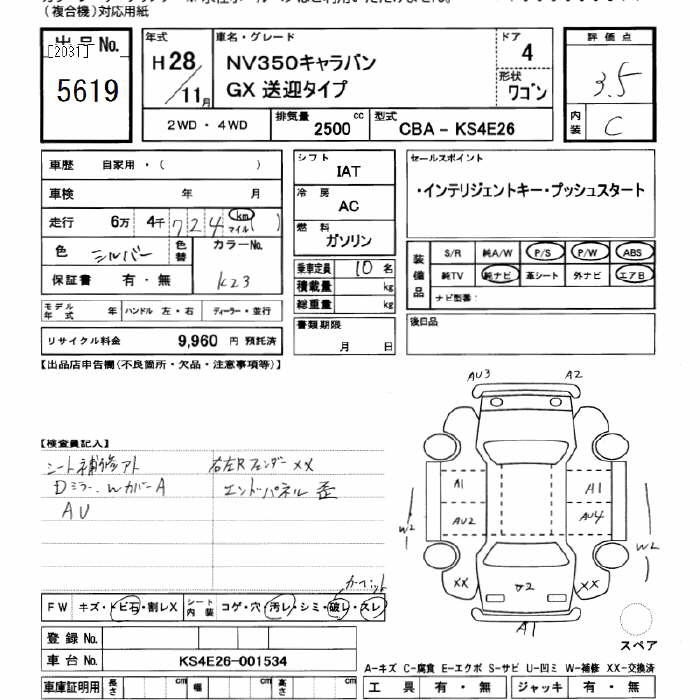 （複合機）対応用紙
出品No.
[2031]
5619
年式
H28/11月
車名・グレード
NV350キャラバン
GX 送迎タイプ
ドア
4
形状
ワゴン
評価点
3.5
内装
C
2WD・4WD
排気量
2500 cc
型式
CBA - KS4E26
車歴 自家用・( )
車検 年 月
走行 6万 4千 724 km マイル ( )
色 シルバー 色替 カラーNo.
K23
保証書 有・無
モデル年式 年 ハンドル 左・右 ディーラー・並行
リサイクル料金 9,960 円 預託済
シフト
IAT
冷房
AC
燃料
ガソリン
乗車定員 10 名
積載量 kg
総重量 kg
書類期限
月 日
セールスポイント
・インテリジェントキー・プッシュスタート
装備品
S/R 純A/W P/S P/W ABS
純TV 純ナビ 革シート 外ナビ エアB
ナビ型番：
後日品
【出品店申告欄(不良箇所・欠品・注意事項等)】
【検査員記入】
シート補修アト 右左Rフェンダー XX
Dミラー、Wカバー A エンドパネル 歪
AU
カーペット
FW キズ・トビ石・割レX シート内装 コゲ・穴・汚レ・シミ・破レ・スレ
登録 No.
車台 No. KS4E26-001534
車庫証明用 長さ cm 幅 cm 高さ cm
AU3 A2
A1 A1
AU2 AU4
W2 W2
XX U2 XX
A1
スペア
A-キズ C-腐食 E-エクボ S-サビ U-凹ミ W-補修 XX-交換済
工具 有・無 ジャッキ 有・無